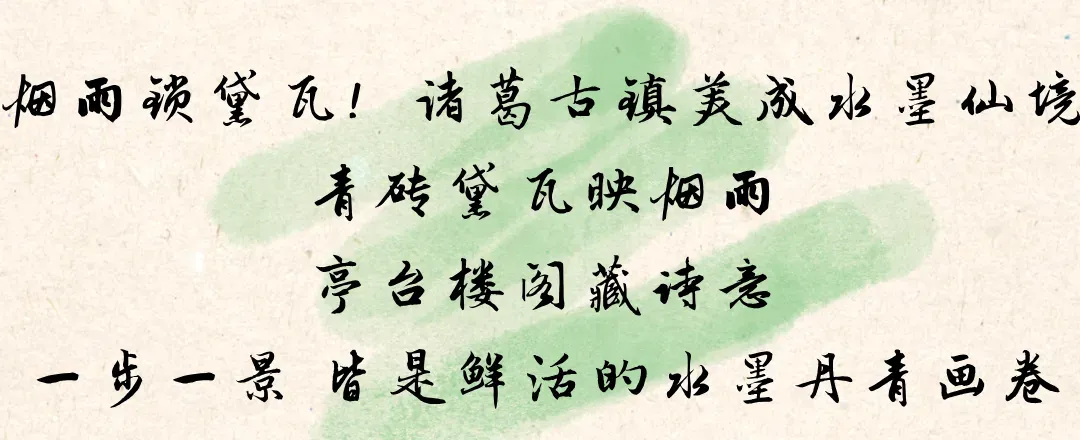 烟雨锁黛瓦！诸葛古镇美成水墨仙境
青砖黛瓦映烟雨
亭台楼阁藏诗意
一步一景 皆是鲜活的水墨丹青画卷